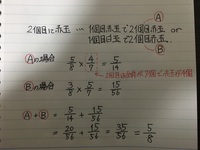 Ⓐ
2個目に赤玉 … 1個目赤玉で2個目赤玉 or
1個目白玉で2個目赤玉
Ⓑ
Ⓐの場合
5/8 × 4/7 = 5/14
Ⓑの場合
3/8 × 5/7 = 15/56
Ⓐ + Ⓑ = 5/14 + 15/56
= 20/56 + 15/56 = 35/56 = 5/8